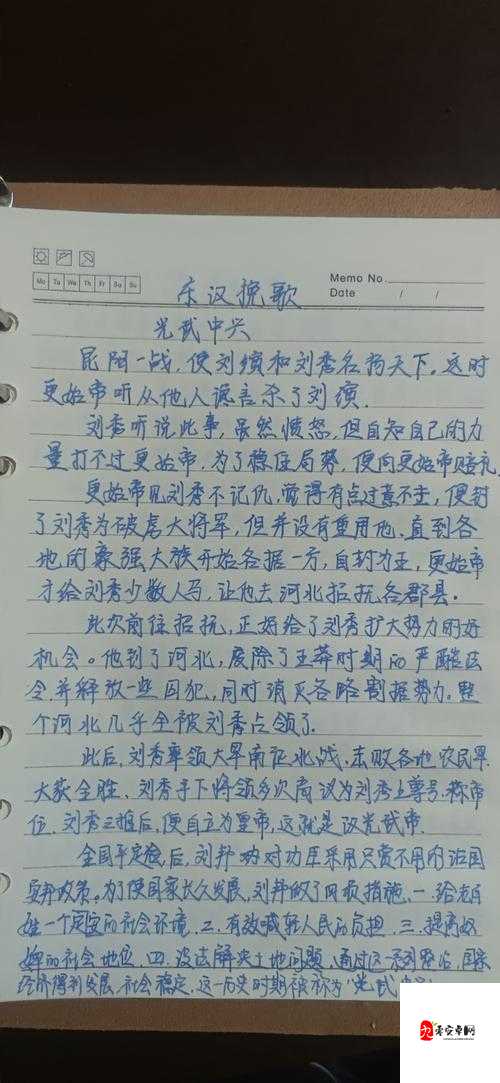 Mo Tu We Th Fr Sa Su
Memo No.
Date / /
东汉挽歌
光武中兴
昆阳一战,使刘縯和刘秀名扬天下。这时
更始帝听从他人谗言杀了刘縯.
刘秀听说此事,虽然愤怒,但自知自己的力
量打不过更始帝.为了稳住局势,便向更始帝赔礼.
更始帝见刘秀不记仇,觉得有点过意不去,便封
了刘秀为破虏大将军,但并没有重用他.直到各
地的豪强大族开始各据一方,自封为王,更始帝
才给刘秀少数人马,让他去河北招抚各郡县.
此次前往招抚,正好给了刘秀扩大势力的好
机会。他到了河北,废除了王莽时期的严酷法
令.并释放一些囚犯,同时消灭各路割据势力.整
个河北几乎全被刘秀占领了.
此后,刘秀率领大军南征北战.击败各地农民军
大获全胜.刘秀手下将领多次商议为刘秀上尊号.称帝
位.刘秀三推后,便自立为皇帝,这就是汉光武帝.
全国平定后,刘邦对功臣采用只赏不用的治国
安邦政策。为了使国家长久发展,刘邦做了四项措施.一.给老百
姓一个定安的社会环境.二.有效减轻人民的负担.三.提高奴
婢的社会地位.四.设法解决土地问题.通过这一系列整治,国家
经济得到发展.社会稳定.这一历史时期被称为"光武
九秀安卓网